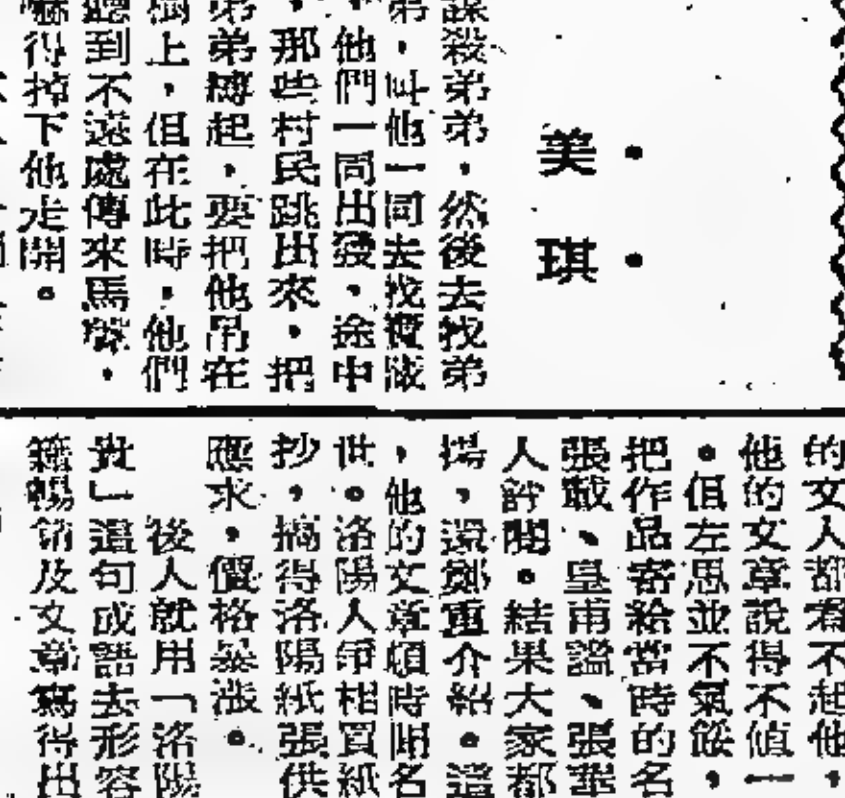 美琪
謀殺弟弟，然後去找弟
弟，叫他一同去找寶藏
，他們一同出發，途中
，那些村民跳出來，把
弟弟縛起，要把他吊在
樹上，但在此時，他們
聽到不遠處傳來馬聲，
嚇得掉下他走開。
的文人都看不起他，
他的文章說得不值一
。但左思並不氣餒，
把作品寄給當時的名
張載、皇甫謐、張華
人評閱。結果大家都
揚，還鄭重介紹。這
，他的文章頓時聞名
世。洛陽人爭相買紙
抄，搞得洛陽紙張供
應求，價格暴漲。
後人就用「洛陽
貴」這句成語去形容
籍暢銷及文章寫得出